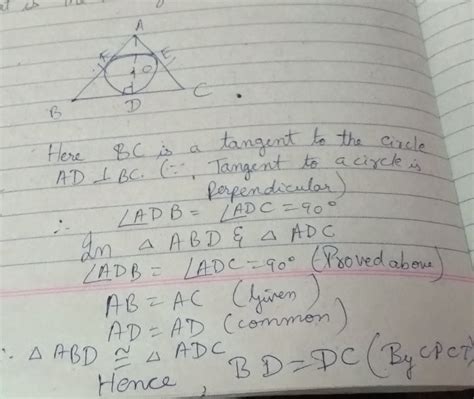 A
F
E
O
B
D
C
Here BC is a tangent to the circle
AD ⊥ BC. (∵, Tangent to a circle is
Perpendicular)
∴ ∠ADB = ∠ADC = 90°
In △ ABD & △ ADC
∠ADB = ∠ADC = 90° (Proved above)
AB = AC (Given)
AD = AD (common)
∴ △ ABD ≅ △ ADC
Hence, BD = DC (By CPCT)